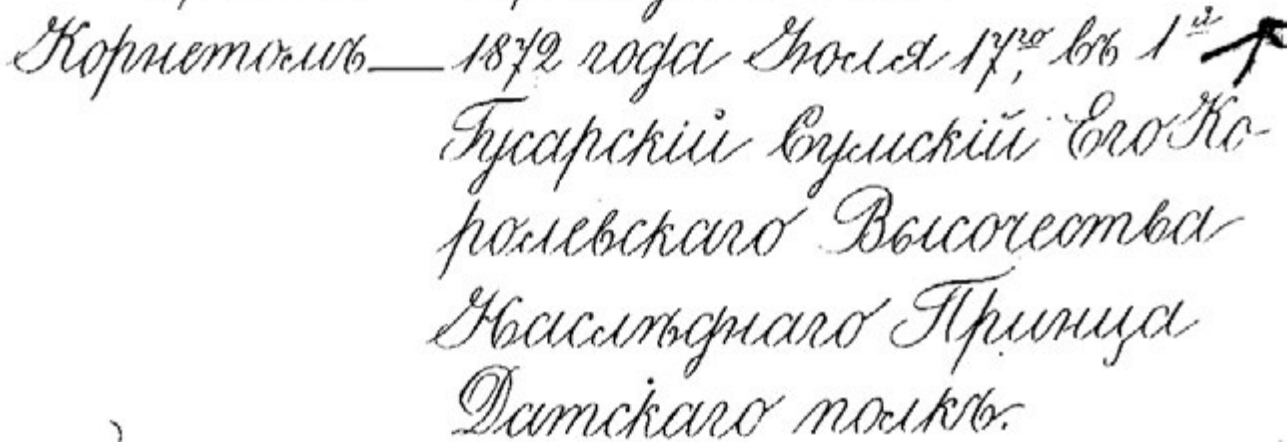 Корнетомъ — 1872 года Іюля 17го, въ 1й
Гусарскій Сумскій Его Ко-
ролевскаго Высочества
Наслѣднаго Принца
Датскаго полкъ.